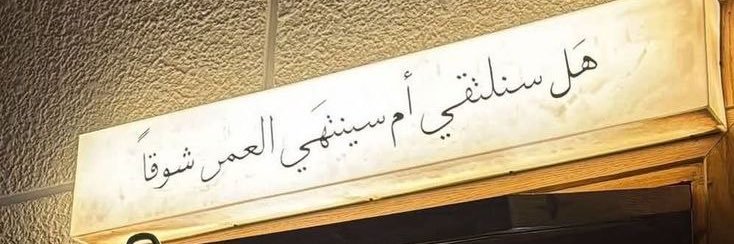 هَل سنلتقي أم سينتهَي العمر شوقاً